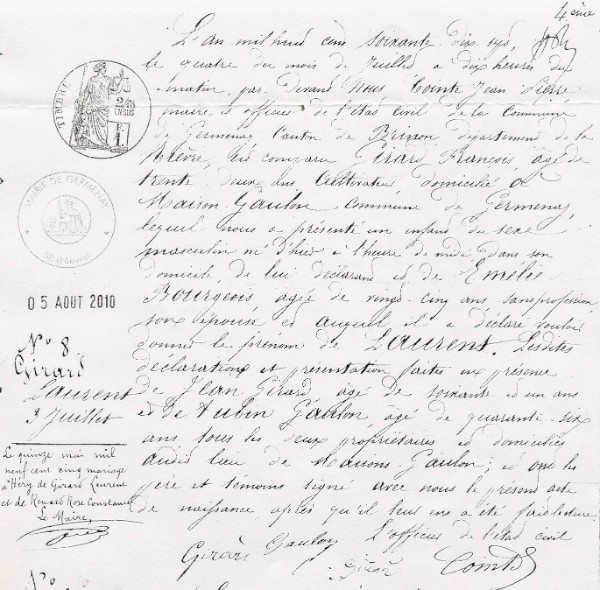 4ème
L'an mil huit cent soixante dix sept,
le quatre du mois de Juillet à dix heures du
matin, par devant Nous Comte Jean Pierre
maire et officier de l'état civil de la Commune
de Germenay Canton de Brinon département de la
Nièvre, est comparu Girard François, âgé de
trente deux ans, Cultivateur, domicilié à
Maison-Gaulon commune de Germenay,
lequel nous a présenté un enfant du sexe
masculin né d'hier à l'heure de midi dans son
domicile, de lui déclarant et de Emélie
Bourgeois agée de vingt cinq ans sans profession
son épouse, et auquel il a déclaré vouloir
donner le prénom de Laurent. Lesdites
déclaration et présentation faites en présence
de Jean Girard, âgé de soixante et un ans
et de Aubin Gaulon, âgé de quarante-six
ans tous les deux propriétaires et domiciliés
audit lieu de Maisons Gaulon; et ont les
père et temoins signé avec nous le présent acte
de naissance après qu'il leur en a été fait lecture.
L'officier de l'état civil
Girard Gaulon
Girard
Comte
TIMBRE
2/10
EN SUS
F.
1.
MAIRIE DE GERMENAY
05 AOUT 2010
No 8
Girard
Laurent
3 Juillet
Le quinze mai mil
neuf cent cinq mariage
à Héry de Girard Laurent
et de Renard Rose Constance
Le Maire,